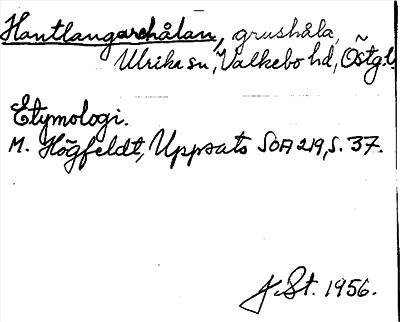 Hantlangarehålan, grushåla,
Ulrika sn, Valkebo hd, Östgl.
Etymologi.
M. Högfeldt, Uppsats SOA 219, s. 37.
J. St. 1956.